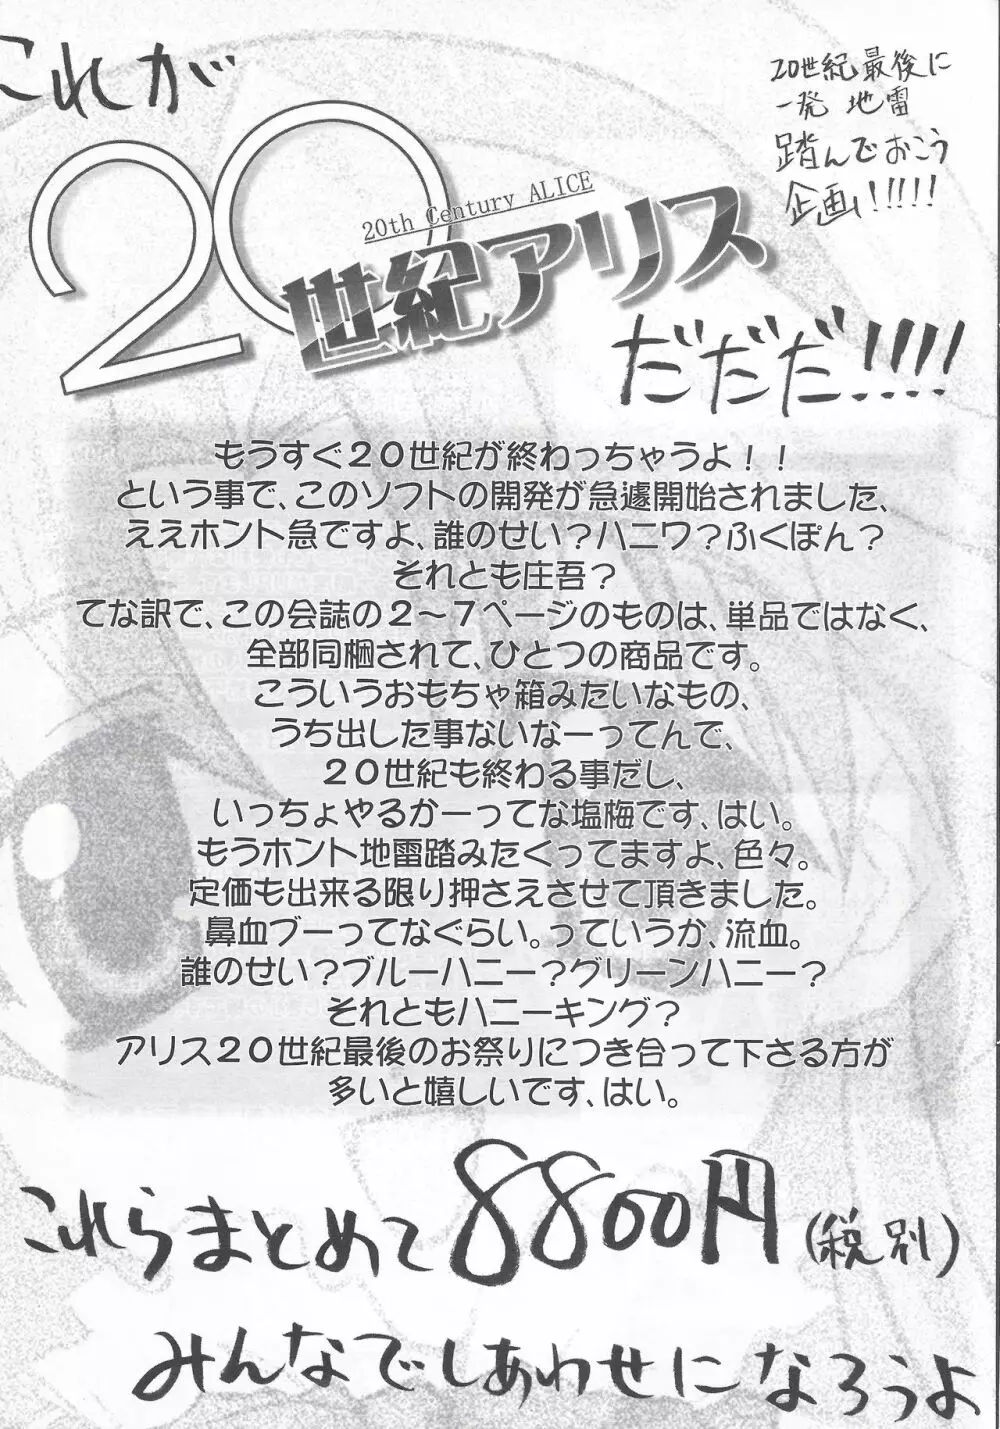 これが
20世紀最後に
一発 地雷
踏んでおこう
企画!!!!!
20th Century ALICE
20世紀アリス
だだだ!!!!
もうすぐ20世紀が終わっちゃうよ!!
という事で、このソフトの開発が急遽開始されました、
ええホント急ですよ、誰のせい?ハニワ?ふくぽん?
それとも庄吾?
てな訳で、この会誌の2〜7ページのものは、単品ではなく、
全部同梱されて、ひとつの商品です。
こういうおもちゃ箱みたいなもの、
うち出した事ないなーってんで、
20世紀も終わる事だし、
いっちょやるかーってな塩梅です、はい。
もうホント地雷踏みたくってますよ、色々。
定価も出来る限り押さえさせて頂きました。
鼻血ブーってなぐらい。っていうか、流血。
誰のせい?ブルーハニー?グリーンハニー?
それともハニーキング?
アリス20世紀最後のお祭りにつき合って下さる方が
多いと嬉しいです、はい。
これらまとめて8800円(税別)
みんなでしあわせになろうよ